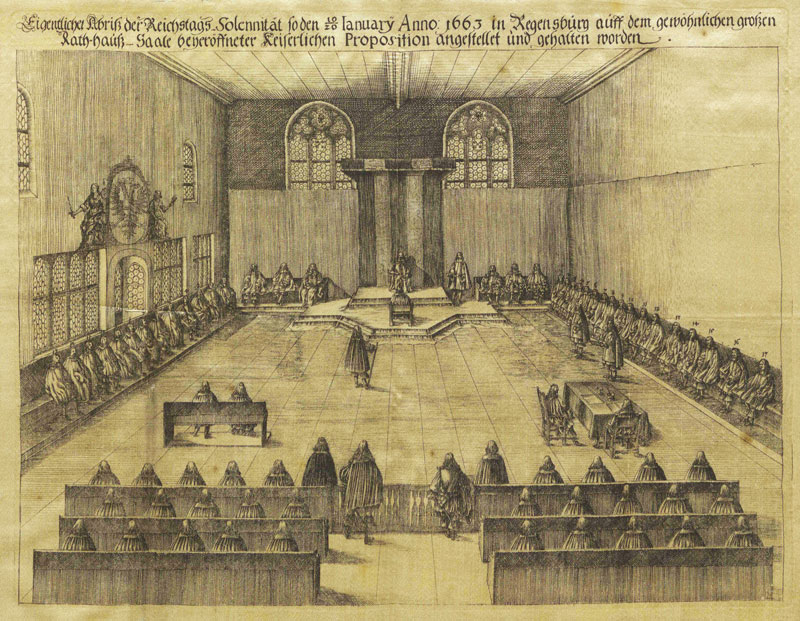 Eigentlicher Abriß der Reichstags Solennität so den 10/20 Januarÿ Anno 1663 in Regensburg auff dem gewöhnlichen großen
Rath-hauß-Saale beÿ eröffneter Keiserlichen Proposition angestellet und gehalten worden.
14 15 16 17